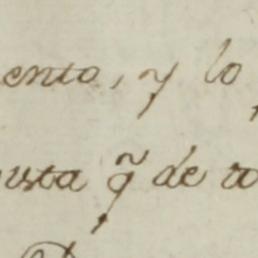 ento, y lo
usta q̃ de